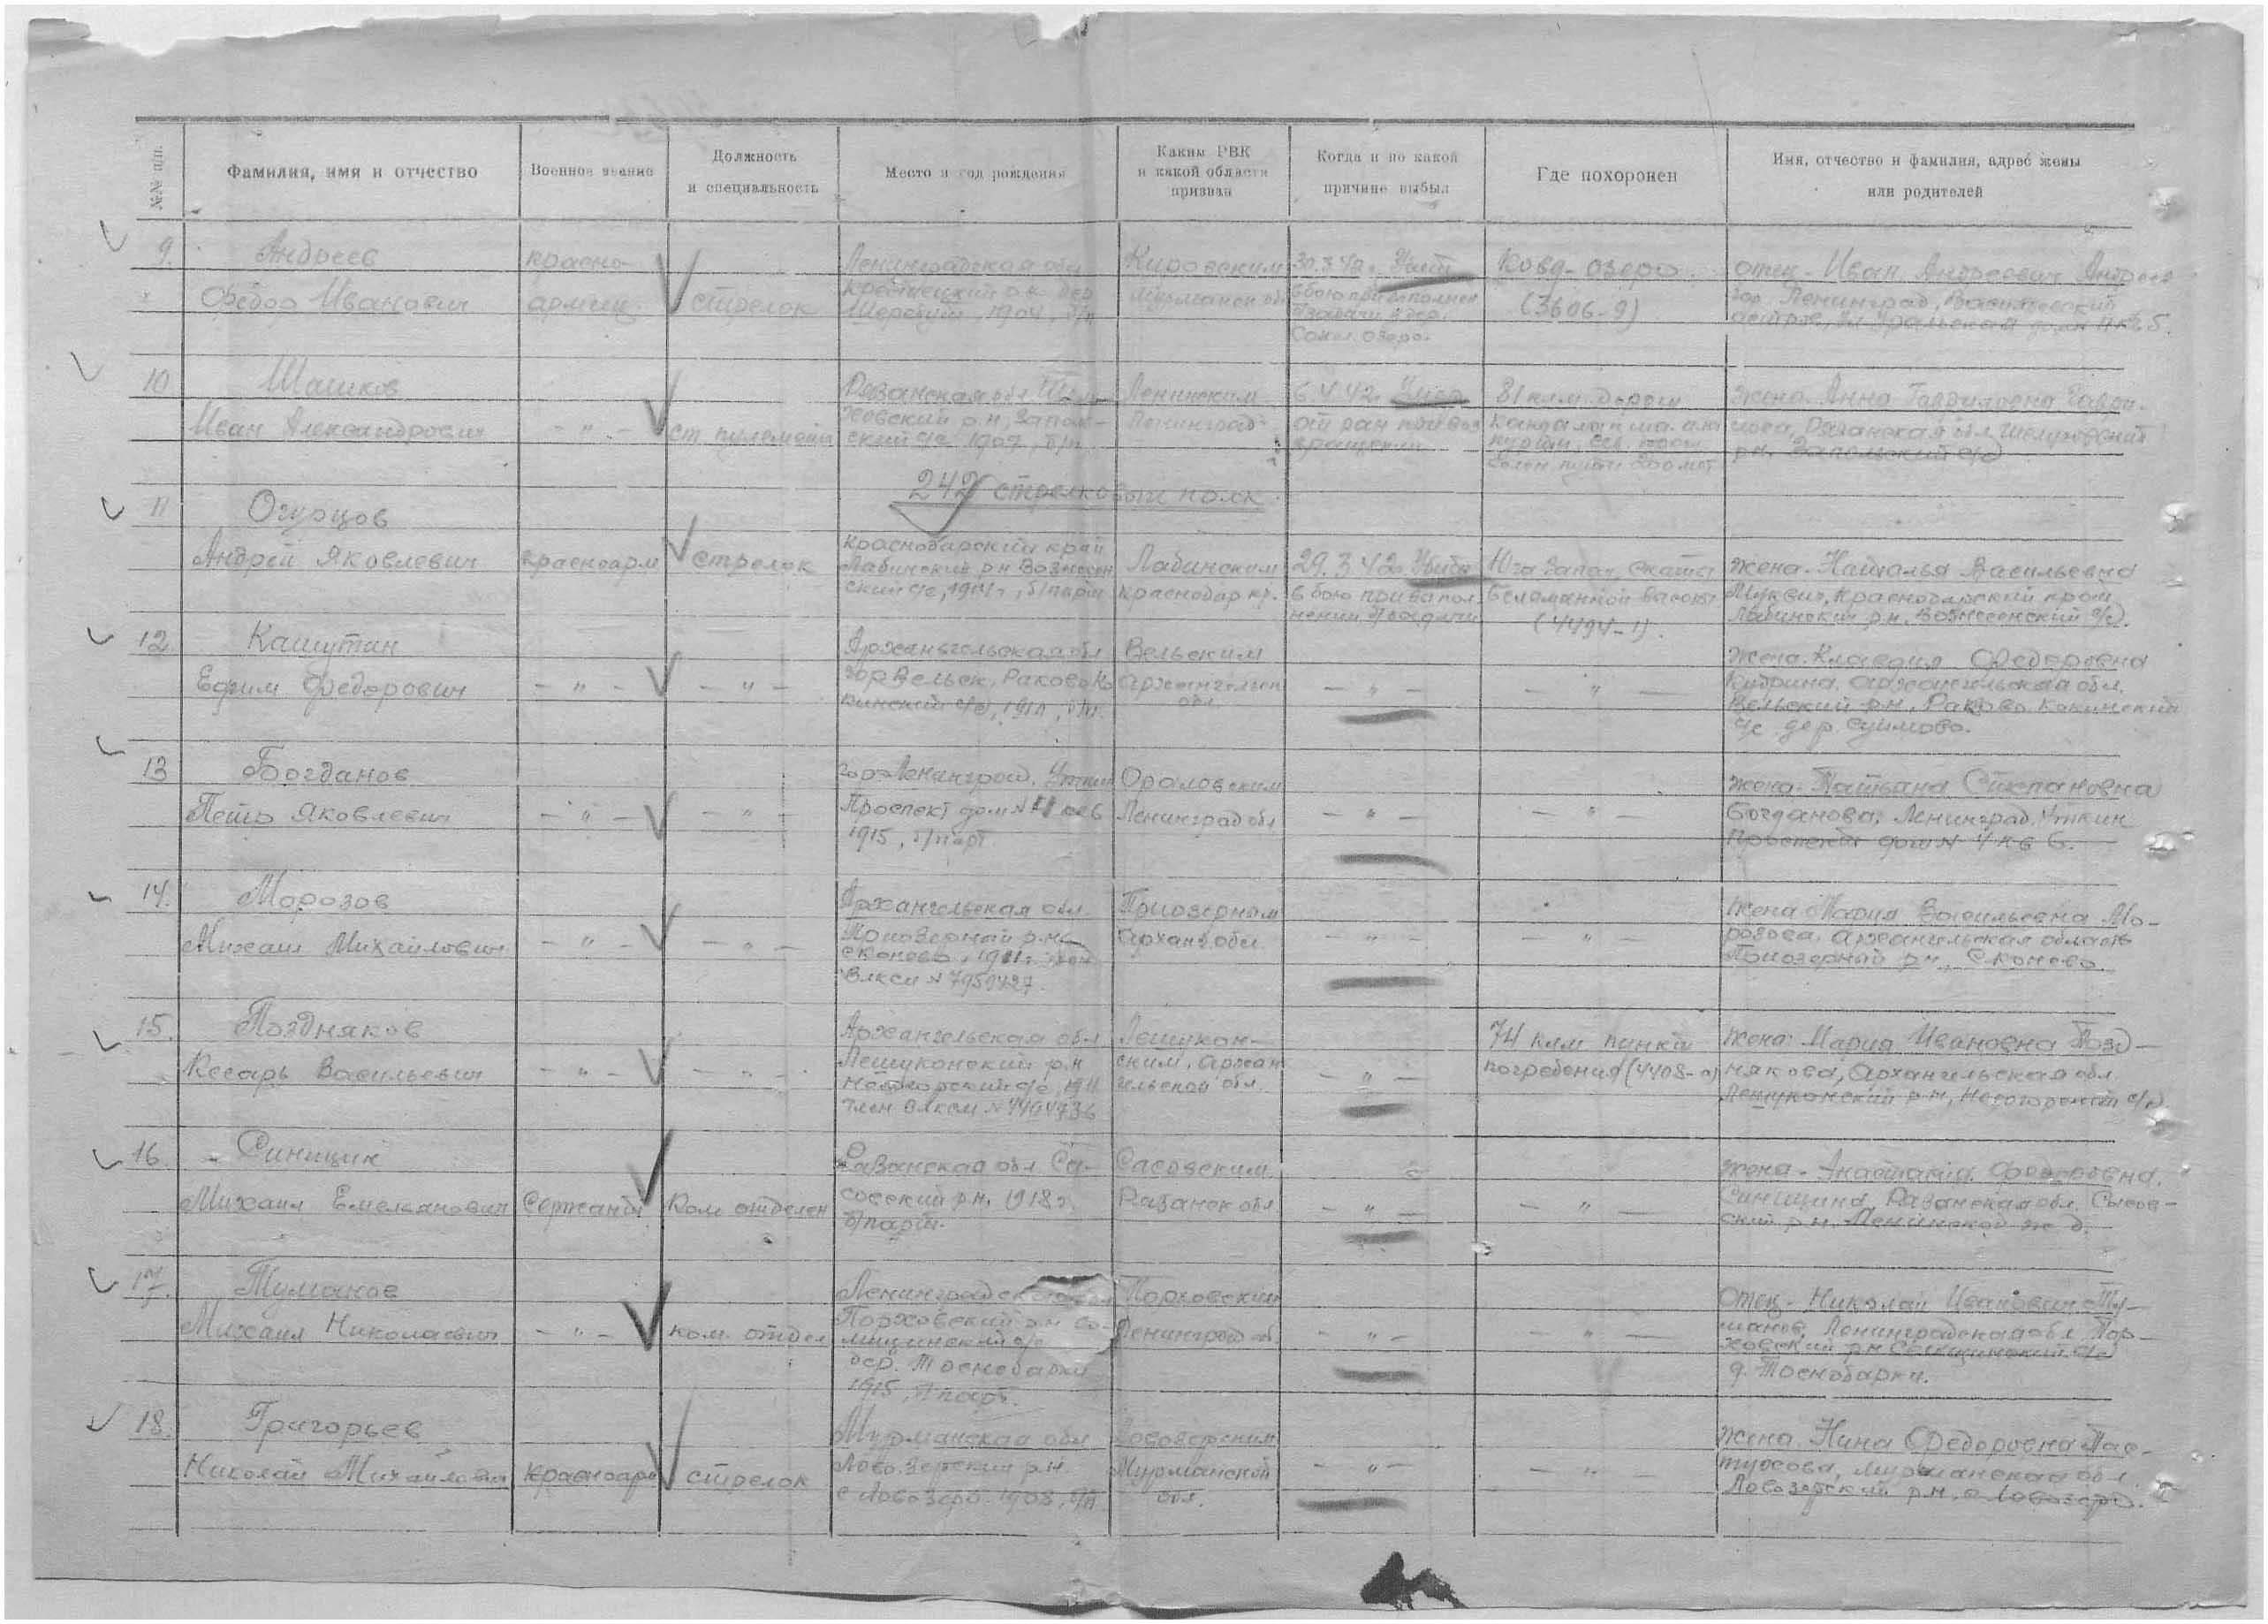 №№ п/п.
Фамилия, имя и отчество
Военное звание
Должность
и специальность
Место и год рождения
Каким РВК
и какой области
призван
Когда и по какой
причине выбыл
Где похоронен
Имя, отчество и фамилия, адрес жены
или родителей
9. Андреев
Федор Иванович
красно-
армиец
стрелок
Ленинградская обл
1904, б/п
Кировским
Мурманск об
30.3.42. Убит
в бою при выполнен
Ковд-озеро.
(3606-9)
отец - Иван Андреевич Андреев
гор. Ленинград, Васильевский
10 Шашков
Иван Александрович
- " -
ст. пулеметч
Рязанская обл
1907, б/п
Ленинским
Ленинград
6.4.42. Умер
от ран
81 клм. дороги
жена. Анна Гавриловна
Рязанская обл. Шелуховский
р-н. Запольский с/с
242 стрелковый полк
11 Огурцов
Андрей Яковлевич
красноарм
стрелок
Краснодарский край
Лабинский рн Вознесен
ский с/с, 1914г, б/парт
Лабинским
Краснодар кр.
29.3.42. Убит
в бою при выпол
нении б/задачи
Юго запад, ската
Безымянной высоты
(4494-1).
жена. Наталья Васильевна
Краснодарский край
Лабинский рн, Вознесенский с/с.
12 Кашутин
Ефим Федорович
- " -
- " -
Архангельская обл
гор Вельск, Раково-Ко
кинский с/с, б/п.
Вельским
Архангельск
обл.
- " -
- " -
жена. Клавдия Федоровна
Архангельская обл.
Вельский р.н, Раково-Кокинский
с/с дер.
13 Богданов
Петр Яковлевич
- " -
- " -
гор. Ленинград. Уткин
Проспект дом №
1915, б/парт
Ленинград обл
- " -
- " -
жена. Татьяна Степановна
Богданова, Ленинград. Уткин
Проспект дом № 4 кв 6.
14. Морозов
Михаил Михайлович
- " -
- " -
Архангельская обл.
Приозерный р.н с
Влксм № 7959427.
Приозерным
Арханг. обл
- " -
- " -
жена Мария Васильевна Мо-
розова. Архангельская область
Приозерный рн,
15. Поздняков
Кесарь Васильевич
- " -
- " -
Архангельская обл
Лешуконский р.н
1911
член Влксм №
Лешукон-
ским, Архан
гельской обл.
- " -
74 клм. пункт
погребения (4408-а)
жена: Мария Ивановна Позд-
някова, Архангельская обл.
Лешуконский р-н,
16. Синицин
Михаил Емельянович
Сержант
Ком. отделен
Рязанская обл. Са-
совский р.н, 1918г.
б/парт.
Сасовским
Рязанск обл
- " -
- " -
жена - Анастасия Федоровна.
Синицина Рязанская обл. Сасов-
ский р-н Ленинской ж. д.
17. Туманов
Михаил Николаевич
- " -
ком. отдел
Ленинградск
Порховский рн Со-
дер. Тоснобарки
1915, б/парт.
Порховским
Ленинград об.
- " -
- " -
Отец - Николай Иванович Ту-
манов, Ленинградская обл Пор-
ховский рн с/с
д. Тоснобарки.
18. Григорьев
Николай Михайлович
Красноарм
стрелок
Мурманская обл
Ловозерский р.н
с Ловозеро. 1908, б/п
Ловозерским
Мурманской
обл.
- " -
- " -
жена. Нина Федоровна Пас-
тухова, Мурманская обл
Ловозерский р.н, с Ловозеро.